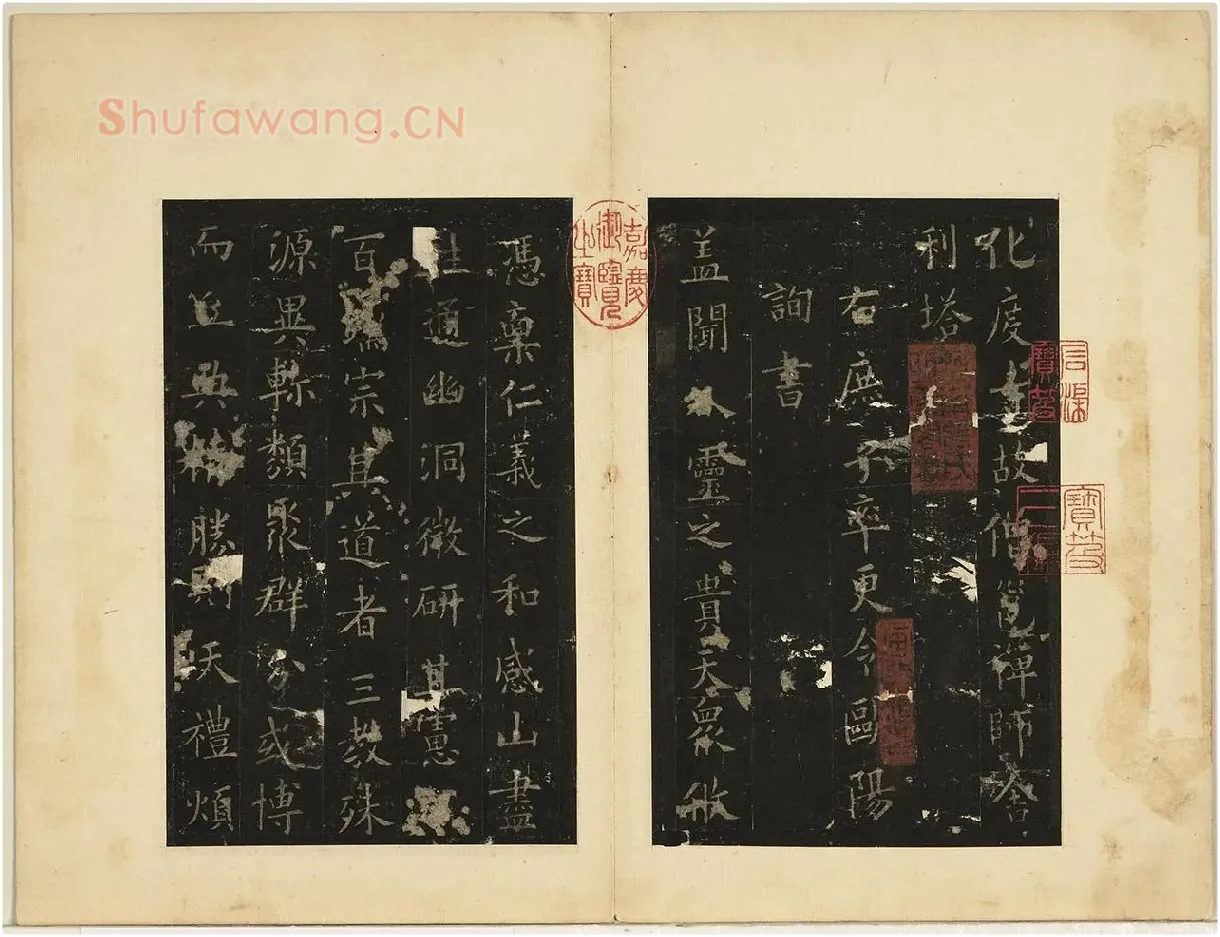 Shufawang.CN
化度寺故僧邕禅師舎
利塔
右庶子率更令歐陽
詢書
盖聞人靈之貴天象攸
憑稟仁義之和感山盡
性通幽洞微研其慮
百宗其道者三教殊
源異軫類聚群分或博
而且典勝則天禮煩
嘉慶御覽之寶